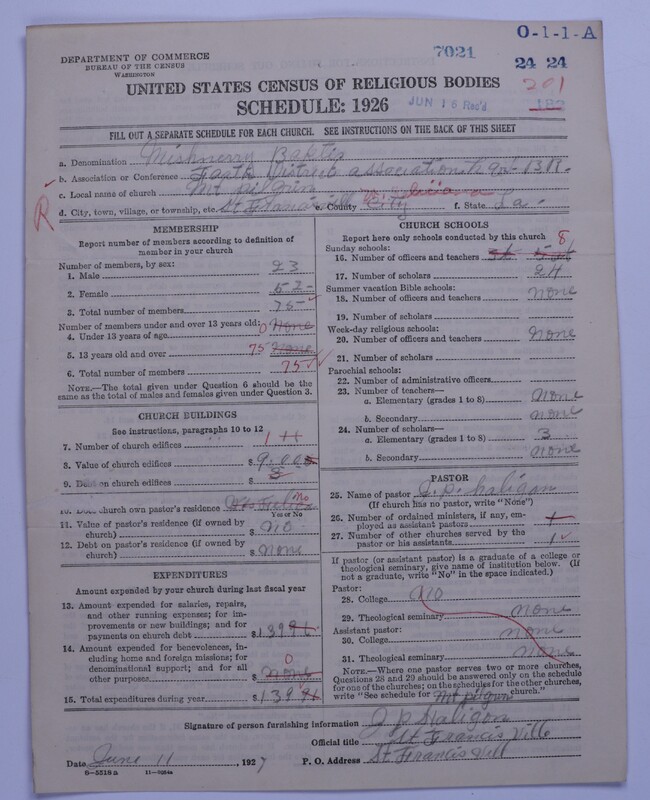 O-1-1-A
7021
24 24
201
182
DEPARTMENT OF COMMERCE
BUREAU OF THE CENSUS
WASHINGTON
UNITED STATES CENSUS OF RELIGIOUS BODIES
SCHEDULE: 1926
JUN 16 Rec'd
FILL OUT A SEPARATE SCHEDULE FOR EACH CHURCH. SEE INSTRUCTIONS ON THE BACK OF THIS SHEET
a. Denomination Mishnerry Baptis
b. Association or Conference District association
c. Local name of church Mt pilgrim
d. City, town, village, or township, etc. St Francis e. County City f. State La.
R
MEMBERSHIP
Report number of members according to definition of
member in your church
Number of members, by sex:
1. Male 23
2. Female 52
3. Total number of members 75
Number of members under and over 13 years old:
4. Under 13 years of age 0 None
5. 13 years old and over 75 None
6. Total number of members 75
NOTE.—The total given under Question 6 should be the
same as the total of males and females given under Question 3.
CHURCH BUILDINGS
See instructions, paragraphs 10 to 12
7. Number of church edifices 1
8. Value of church edifices $
9. Debt on church edifices $
10. Does church own pastor's residence No
Yes or No
11. Value of pastor's residence (if owned by
church) $ No
12. Debt on pastor's residence (if owned by
church) $ None
EXPENDITURES
Amount expended by your church during last fiscal year
13. Amount expended for salaries, repairs,
and other running expenses; for im-
provements or new buildings; and for
payments on church debt $ 139
14. Amount expended for benevolences, in-
cluding home and foreign missions; for
denominational support; and for all
other purposes $ 0 None
15. Total expenditures during year $ 139
CHURCH SCHOOLS
Report here only schools conducted by this church
Sunday schools:
16. Number of officers and teachers 8
17. Number of scholars 24
Summer vacation Bible schools:
18. Number of officers and teachers none
19. Number of scholars
Week-day religious schools:
20. Number of officers and teachers none
21. Number of scholars
Parochial schools:
22. Number of administrative officers
23. Number of teachers—
a. Elementary (grades 1 to 8) none
b. Secondary none
24. Number of scholars—
a. Elementary (grades 1 to 8) 3
b. Secondary none
PASTOR
25. Name of pastor J. P. haligan
(If church has no pastor, write "None")
26. Number of ordained ministers, if any, em-
ployed as assistant pastors
27. Number of other churches served by the
pastor or his assistants 1
If pastor (or assistant pastor) is a graduate of a college or
theological seminary, give name of institution below. (If
not a graduate, write "No" in the space indicated.)
Pastor:
28. College No
29. Theological seminary none
Assistant pastor:
30. College none
31. Theological seminary none
NOTE.—Where one pastor serves two or more churches,
Questions 28 and 29 should be answered only on the schedule
for one of the churches; on the schedules for the other churches,
write "See schedule for Mt pilgrim church."
Signature of person furnishing information J P Haligan
Official title St Francis Ville
Date June 11, 1927 P. O. Address St Francis Vill
8-5518a 11-9264a